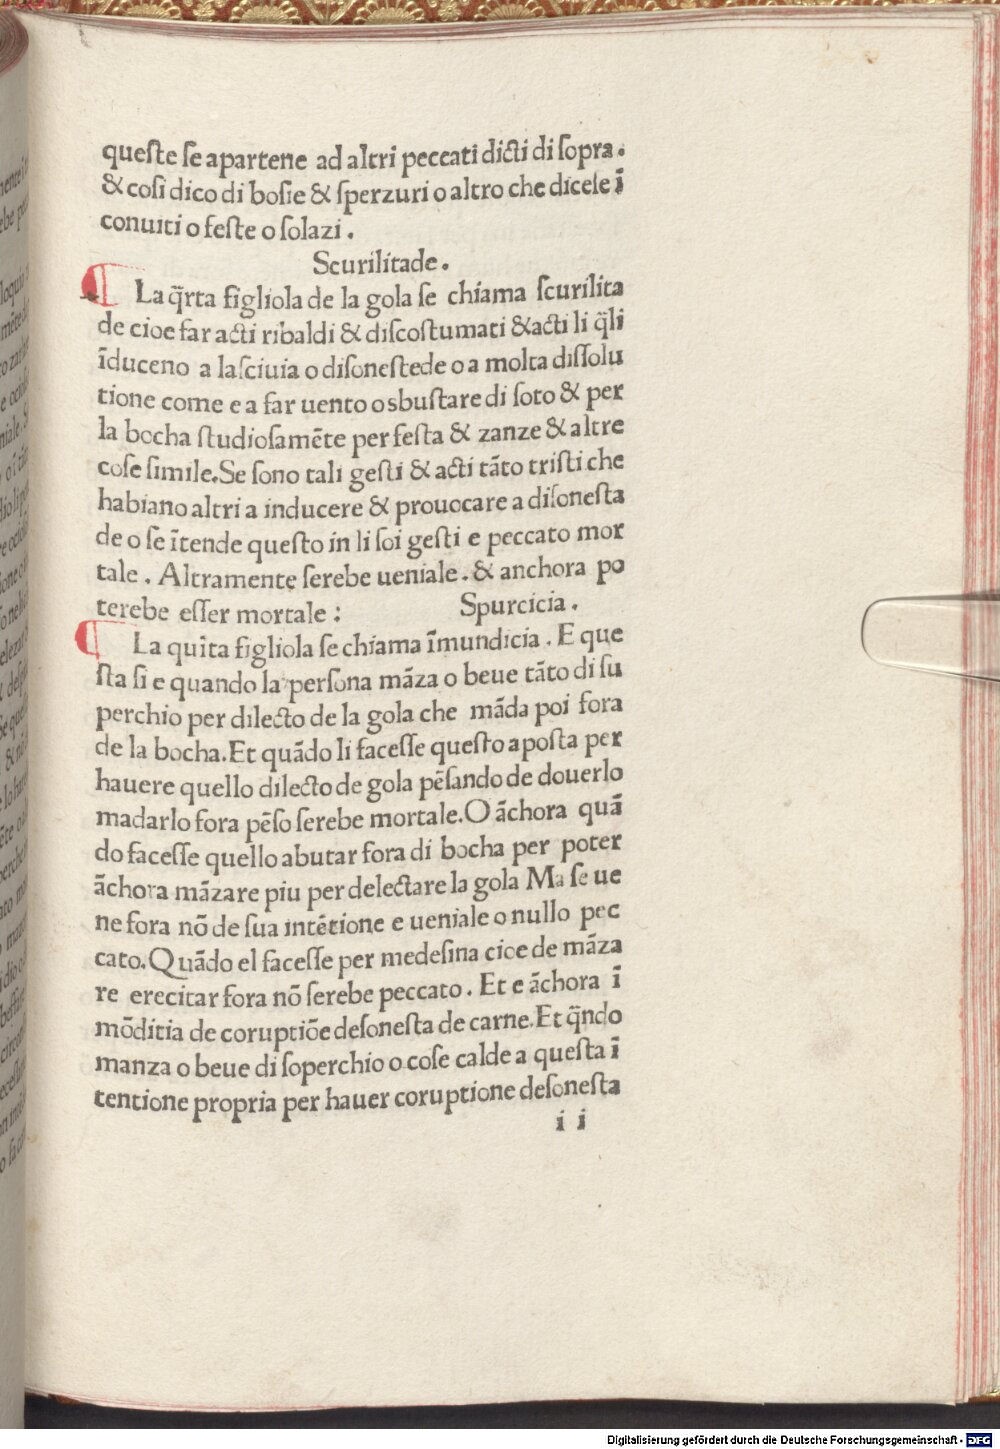 queſte ſe apartene ad altri peccati dicti di ſopra.
& coſi dico di boſie & ſperzuri o altro che diceſe ī
conuiti o feſte o ſolazi.
Scurilitade.
La q̄rta figliola de la gola ſe chiama ſcurilita
de cioe far acti ribaldi & diſcoſtumati & acti li q̄li
īduceno a laſciuia o diſoneſtede o a molta diſſolu
tione come e a far uento o sbuſtare di ſoto & per
la bocha ſtudioſamēte per feſta & zanze & altre
coſe ſimile. Se ſono tali geſti & acti tāto triſti che
habiano altri a inducere & prouocare a diſoneſta
de o ſe ītende queſto in li ſoi geſti e peccato mor
tale. Altramente ſerebe ueniale. & anchora po
terebe eſſer mortale: Spurcicia.
La quīta figliola ſe chiama īmundicia. E que
ſta ſi e quando la perſona māza o beue tāto di ſu
perchio per dilecto de la gola che māda poi fora
de la bocha. Et quādo li faceſſe queſto a poſta per
hauere quello dilecto de gola pēſando de douerlo
madarlo fora pēſo ſerebe mortale. O āchora quā
do faceſſe quello abutar fora di bocha per poter
āchora māzare piu per delectare la gola Ma ſe ue
ne fora nō de ſua intētione e ueniale o nullo pec
cato. Quādo el faceſſe per medeſina cioe de māza
re erecitar fora nō ſerebe peccato. Et e āchora ī
mōditia de coruptiōe deſoneſta de carne. Et q̄ndo
manza o beue di ſoperchio o coſe calde a queſta ī
tentione propria per hauer coruptione deſoneſta
i i
Digitalisierung gefördert durch die Deutsche Forschungsgemeinschaft - DFG